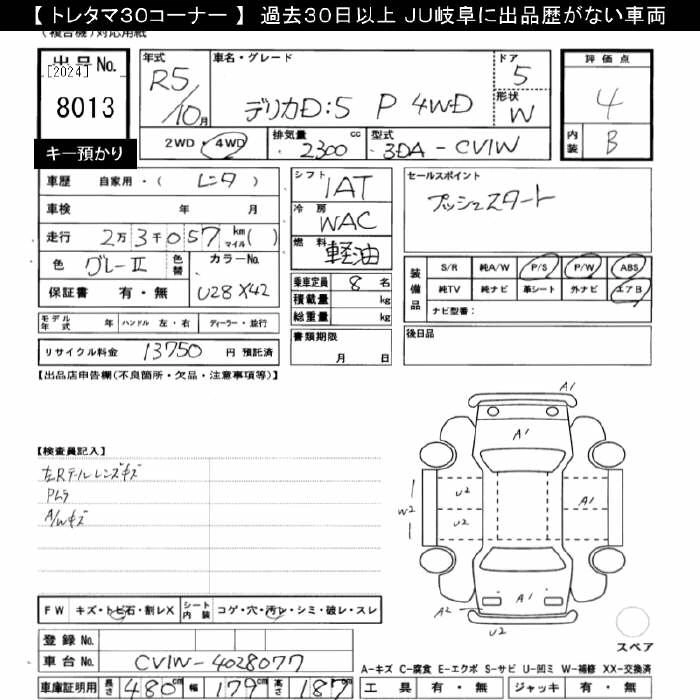 【 トレタマ30コーナー 】 過去30日以上 JU岐阜に出品歴がない車両
(複合機)対応用紙
出品No. [2024] 8013
キー預かり
年式 R5/10月
車名・グレード デリカD:5 P 4WD
ドア 5
形状 W
評価点 4
内装 B
2WD・4WD
排気量 2300 cc
型式 3DA-CV1W
車歴 自家用・( レンタ )
車検 年 月
走行 2万3千057 km マイル( )
色 グレーII 色替 カラーNo. U28 X42
保証書 有・無
シフト IAT
冷房 WAC
燃料 軽油
乗車定員 8 名
積載量 kg
総重量 kg
書類期限 月 日
セールスポイント
プッシュスタート
装備品 S/R 純A/W P/S P/W ABS
純TV 純ナビ 革シート 外ナビ エアB
ナビ型番:
後日品
モデル年式 年 ハンドル 左・右 ディーラー・並行
リサイクル料金 13750 円 預託済
【出品店申告欄(不良箇所・欠品・注意事項等)】
【検査員記入】
左Rテールレンズキズ
Pムラ
A/Wキズ
A1
A1
U2
W2
U2
A1
A1
A2
U2
スペア
FW キズ・トビ石・割レX シート内装 コゲ・穴・汚レ・シミ・破レ・スレ
登録 No.
車台 No. CV1W-4028077
車庫証明用 長さ 480 cm 幅 179 cm 高さ 187 cm
A-キズ C-腐食 E-エクボ S-サビ U-凹ミ W-補修 XX-交換済
工具 有・無 ジャッキ 有・無